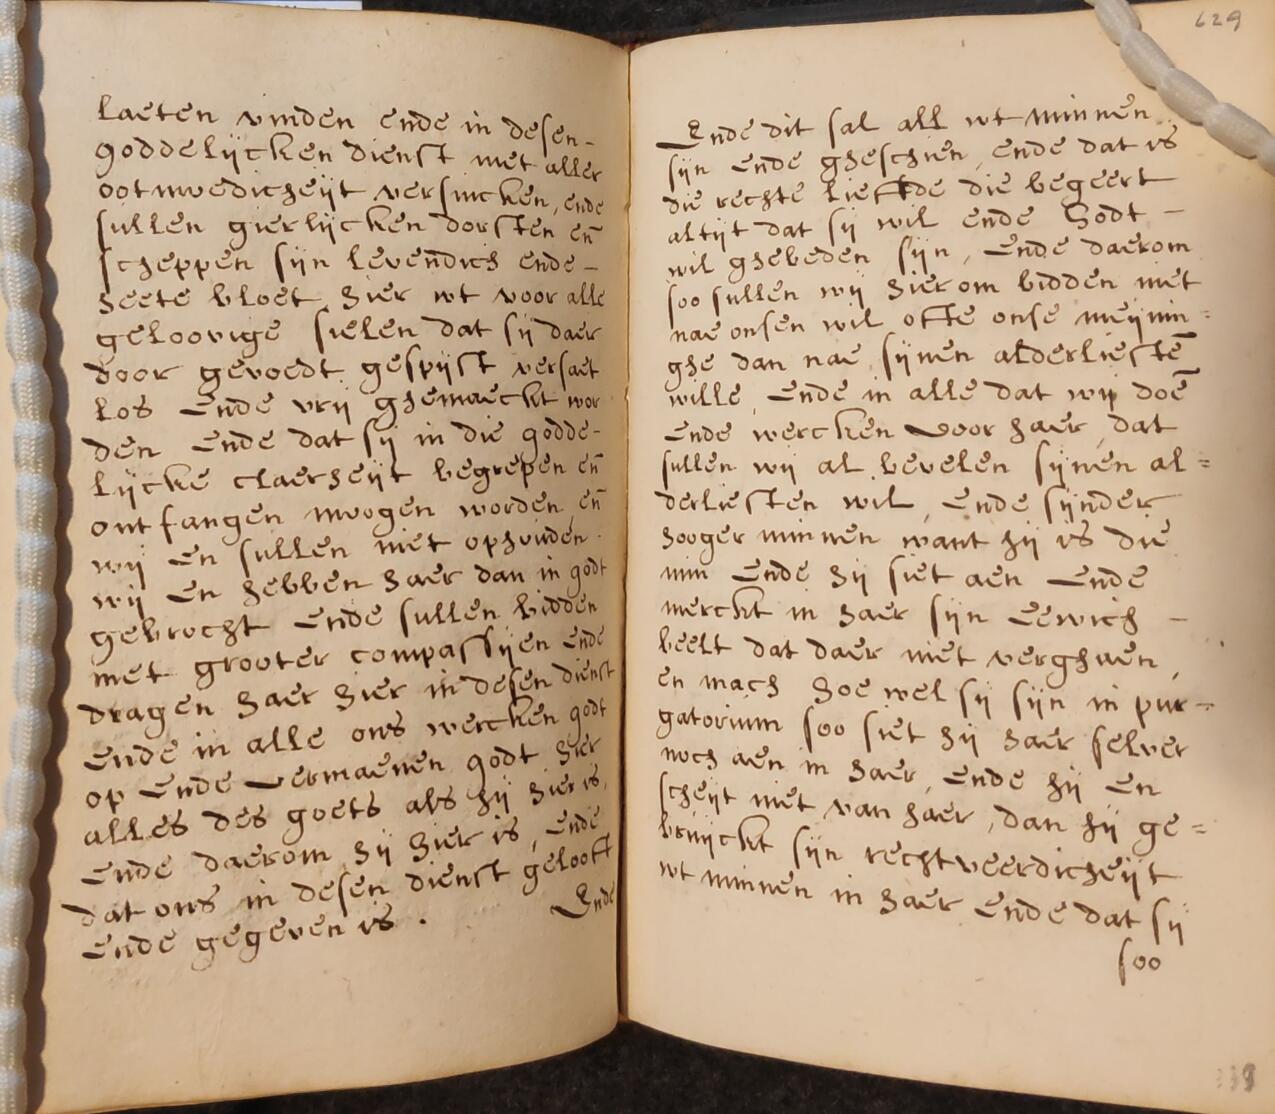 laeten vinden ende in desen-
goddelijcken dienst met aller
ootmoedicheijt versincken, ende
sullen gierlijcken dorsten en̄
scheppen sijn levendich ende-
heete bloet hier wt voor alle
geloovige sielen dat sij daer
door gevoedt gespijst versaet
los ende vrij ghemaeckt wor
den ende dat sij in die godde-
lijcke claerheijt begrepen en̄
ontfangen moogen worden en̄
wij en sullen niet ophouden
wij en hebben haer dan in godt
gebrocht ende sullen bidden
met grooter compassijen ende
dragen haer hier in desen dienst
ende in alle ons wercken godt
op ende vermaenen godt hier
alles des goets als hij hier is,
ende daerom hij hier is, ende
dat ons in desen dienst gelooft
ende gegeven is.
Ende
629
Ende dit sal all wt minnen
sijn ende gheschien, ende dat is
die rechte liefde die begeert
altijt dat sij wil ende Godt -
wil ghebeden sijn, Ende daerom
soo sullen wij hierom bidden niet
nae onsen wil ofte onse meijnin=
ghe dan nae sijnen alderliestē
wille, ende in alle dat wij doē
ende wercken voor haer, dat
sullen wij al bevelen sijnen al=
derliesten wil, ende sijnder
hooger minnen want hij is die
min ende hij siet aen ende
merckt in haer sijn eewich -
beelt dat daer niet verghaen,
en mach hoe wel sij sijn in pur=
gatorium soo siet hij haer selver
noch aen in haer, ende hij en
scheijt niet van haer, dan hij ge=
bruijckt sijn rechtveerdicheijt
wt minnen in haer ende dat sij
soo